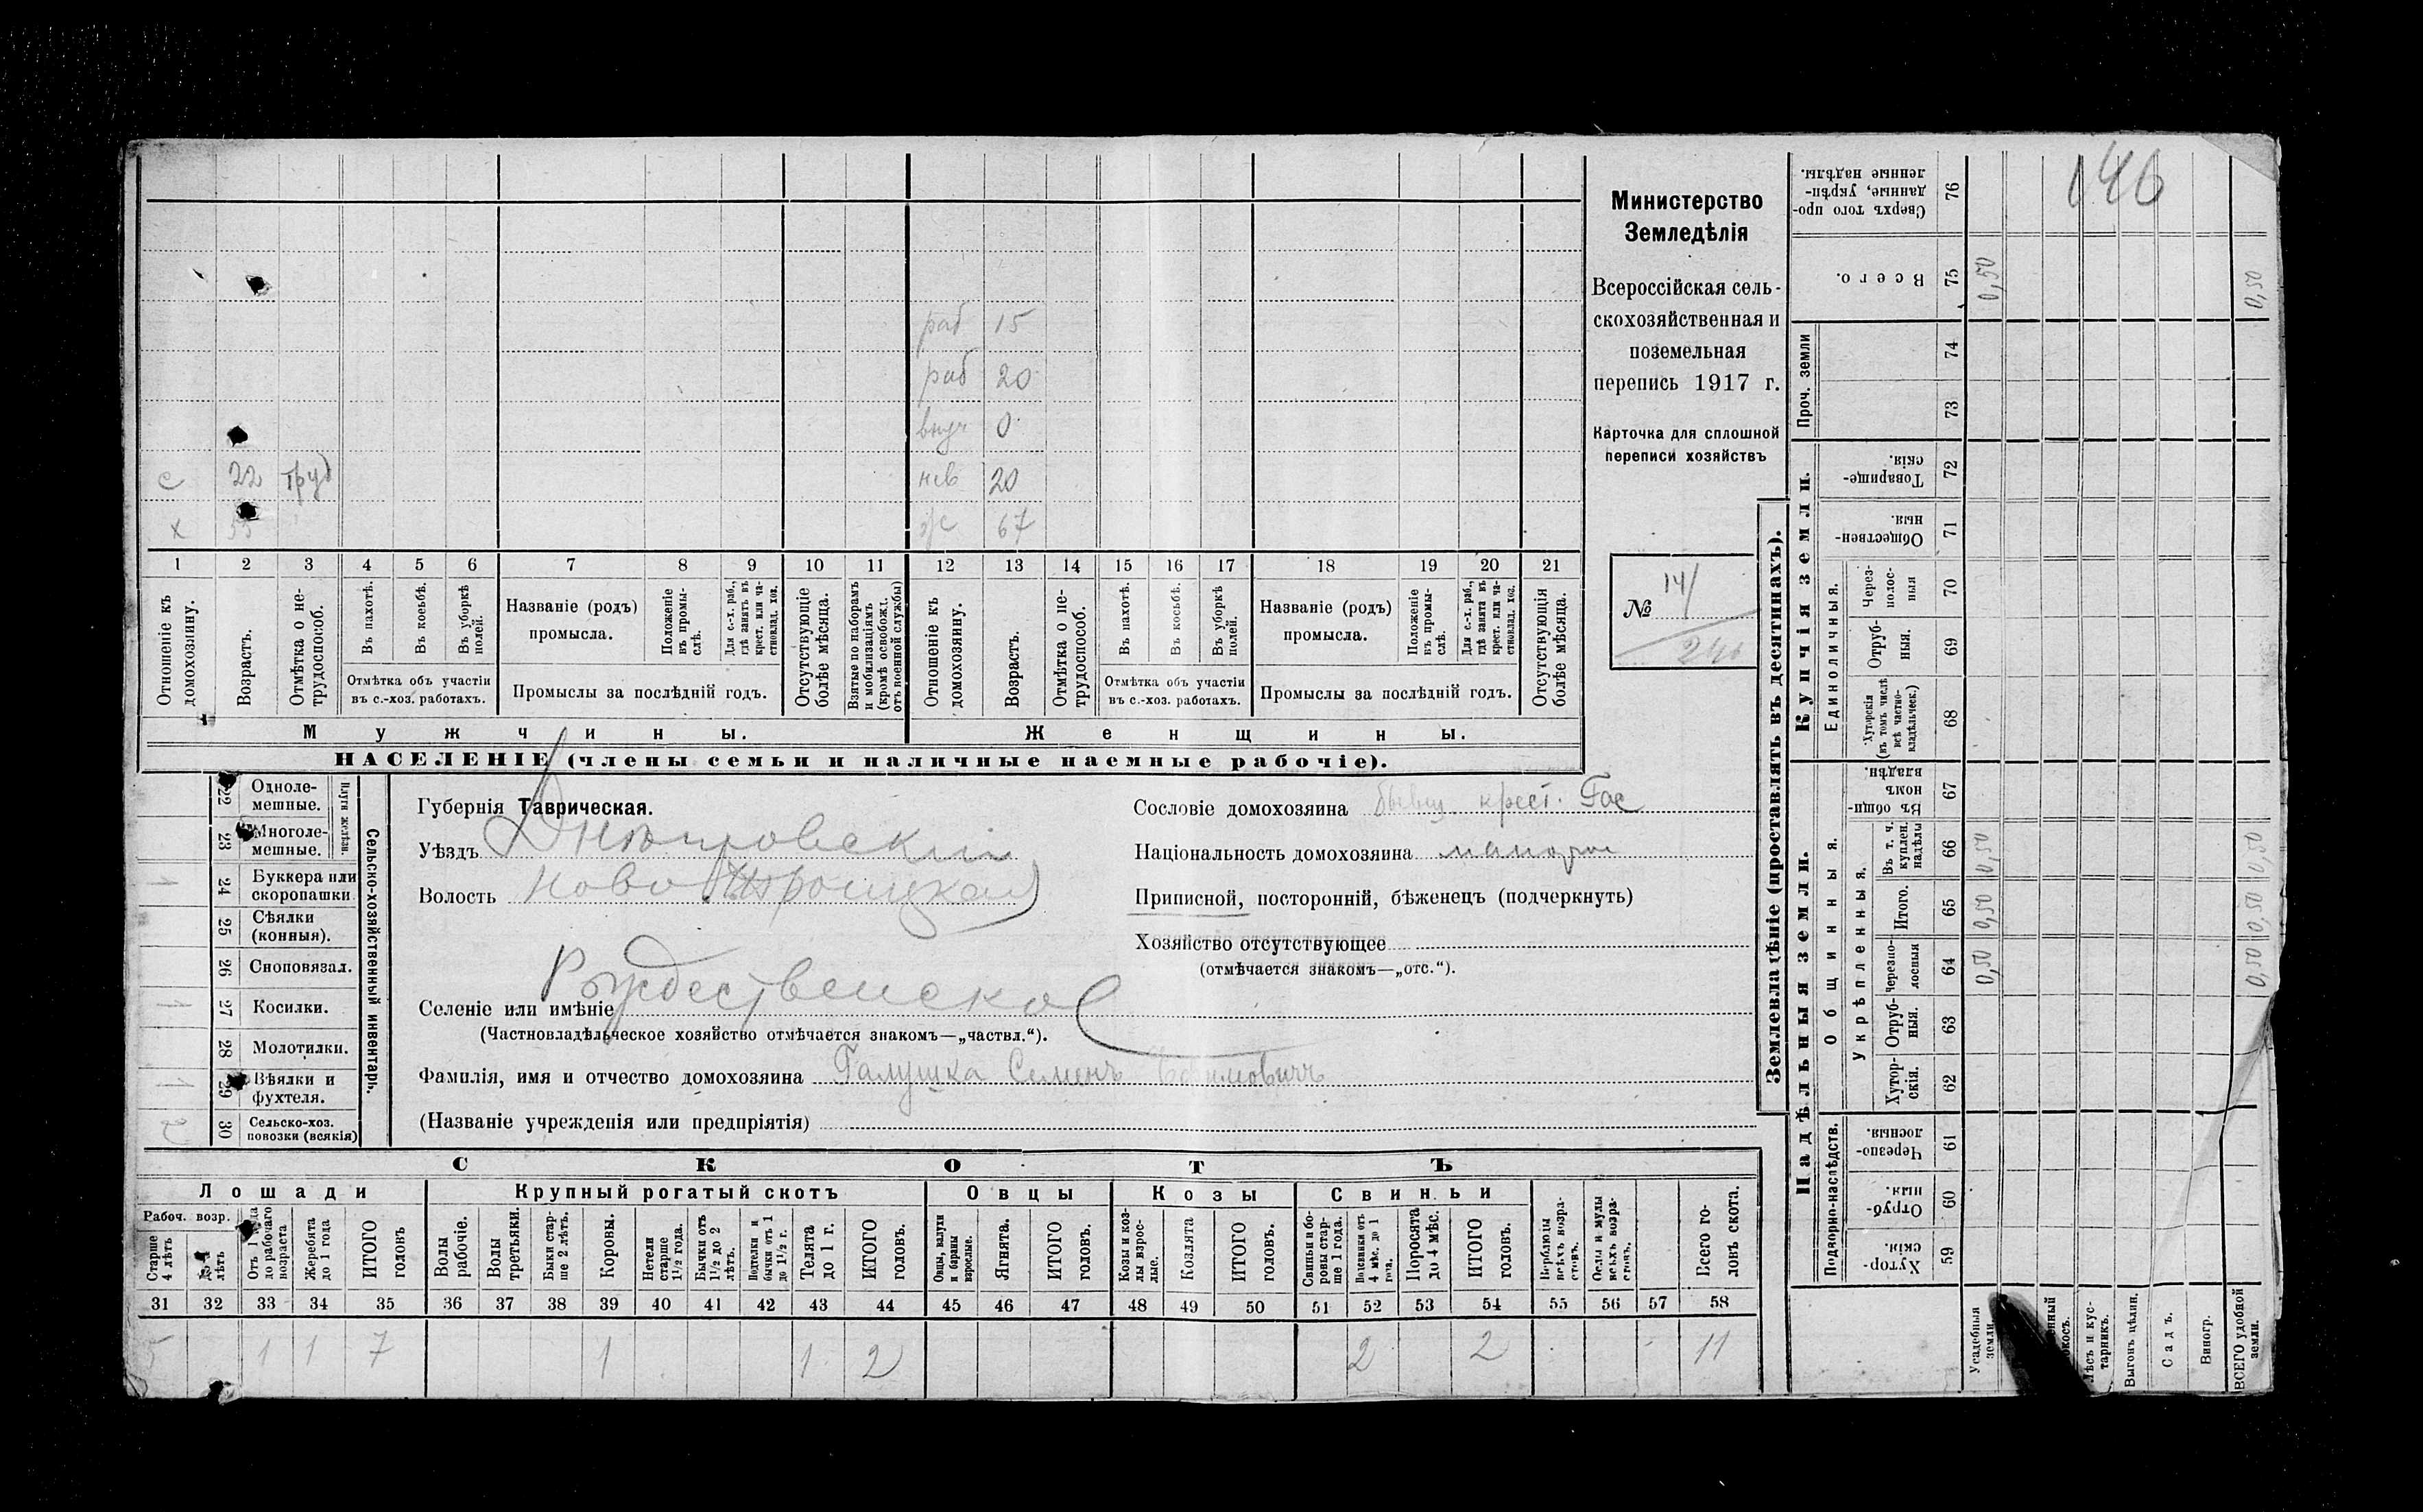 146
Министерство
Земледѣлія
Всероссійская сель-
скохозяйственная и
поземельная
перепись 1917 г.
Карточка для сплошной
переписи хозяйствъ
№ 141
раб 15
раб 20
внуч 0
с 22 труд нев 20
х 55 ж 67
1 2 3 4 5 6 7 8 9 10 11 12 13 14 15 16 17 18 19 20 21
Отношеніе къ домохозяину.
Возрастъ.
Отмѣтка о не-трудоспособ.
Въ пахотѣ.
Въ косьбѣ.
Въ уборкѣ полей.
Отмѣтка объ участіи
въ с.-хоз. работахъ.
Названіе (родъ)
промысла.
Положеніе въ промы-слѣ.
Для с.-х. раб., гдѣ занятъ въ крест. или ча-стновлад. хоз.
Промыслы за послѣдній годъ.
Отсутствующіе болѣе мѣсяца.
Взятые по наборамъ и мобилизаціямъ (кромѣ освобожд. отъ военной службы)
Отношеніе къ домохозяину.
Возрастъ.
Отмѣтка о не-трудоспособ.
Въ пахотѣ.
Въ косьбѣ.
Въ уборкѣ полей.
Отмѣтка объ участіи
въ с.-хоз. работахъ.
Названіе (родъ)
промысла.
Положеніе въ промы-слѣ.
Для с.-х. раб., гдѣ занята въ крест. или ча-стновлад. хоз.
Промыслы за послѣдній годъ.
Отсутствующія болѣе мѣсяца.
Мужчины. Женщины.
НАСЕЛЕНІЕ (члены семьи и наличные наемные рабочіе).
Сельско-хозяйственный инвентарь.
Плуги желѣзн.
22 Однолемешные.
23 Многолемешные.
1 24 Буккера или скоропашки
25 Сѣялки (конныя).
26 Сноповязал.
1 27 Косилки.
28 Молотилки.
1 29 Вѣялки и фухтеля.
2 30 Сельско-хоз. повозки (всякія)
Губернія Таврическая.
Уѣздъ Днѣпровскій
Волость Ново Троицкая
Селеніе или имѣніе Рождественское
(Частновладѣльческое хозяйство отмѣчается знакомъ—„частвл.“).
Фамилія, имя и отчество домохозяина Галушка Семенъ Ефимовичъ
(Названіе учрежденія или предпріятія)
Сословіе домохозяина бывш. крест. Гос
Національность домохозяина малорос
Приписной, посторонній, бѣженецъ (подчеркнуть)
Хозяйство отсутствующее
(отмѣчается знакомъ—„отс.“).
СКОТЪ
Лошади Крупный рогатый скотъ Овцы Козы Свиньи
Рабоч. возр.
Старше 4 лѣтъ
До 4 лѣтъ
Отъ 1 года до рабочаго возраста
Жеребята до 1 года
ИТОГО головъ
Волы рабочіе.
Волы третьяки.
Быки стар-ше 2 лѣтъ.
Коровы.
Нетели старше 1½ года.
Бычки отъ 1½ до 2 лѣтъ.
Подтелки и бычки отъ 1 до 1½ г.
Телята до 1 г.
ИТОГО головъ.
Овцы, валухи и бараны взрослые.
Ягнята.
ИТОГО головъ.
Козы и коз-лы взрос-лые.
Козлята
ИТОГО головъ.
Свиньи и бо-ровы стар-ше 1 года.
Подсвинки отъ 4 мѣс. до 1 года.
Поросята до 4 мѣс.
ИТОГО головъ.
Верблюды всѣхъ возра-стовъ.
Ослы и мулы всѣхъ возра-стовъ.
Всего го-ловъ скота.
31 32 33 34 35 36 37 38 39 40 41 42 43 44 45 46 47 48 49 50 51 52 53 54 55 56 57 58
5 1 1 7 1 1 2 2 2 11
Землевладѣніе (проставлять въ десятинахъ).
Надѣльныя земли. Купчія земли.
Подворно-наслѣдств. Общинныя. Единоличныя. Проч. земли
Укрѣпленныя.
Хутор-скія. 59
Отруб-ныя. 60
Черезпо-лосныя. 61
Хутор-скія. 62
Отруб-ныя. 63
Черезпо-лосныя 64
Итого. 65
Въ т. ч. куплен. надѣлы 66
Въ общин-номъ владѣн. 67
Хуторскія (въ томъ числѣ всѣ частно-владѣльческ.) 68
Отруб-ныя. 69
Через-полос-ныя 70
Обществен-ныя. 71
Товарище-скія. 72
73
74
Всего. 75
Сверхъ того про-данные, укрѣп-ленные надѣлы. 76
Усадебныя земли. 0,50 0,50 0,50 0,50
Лѣсъ и кус-тарникъ.
Выгонъ цѣлин.
Садъ.
Виногр.
ВСЕГО удобной земли. 0,50 0,50 0,50 0,50